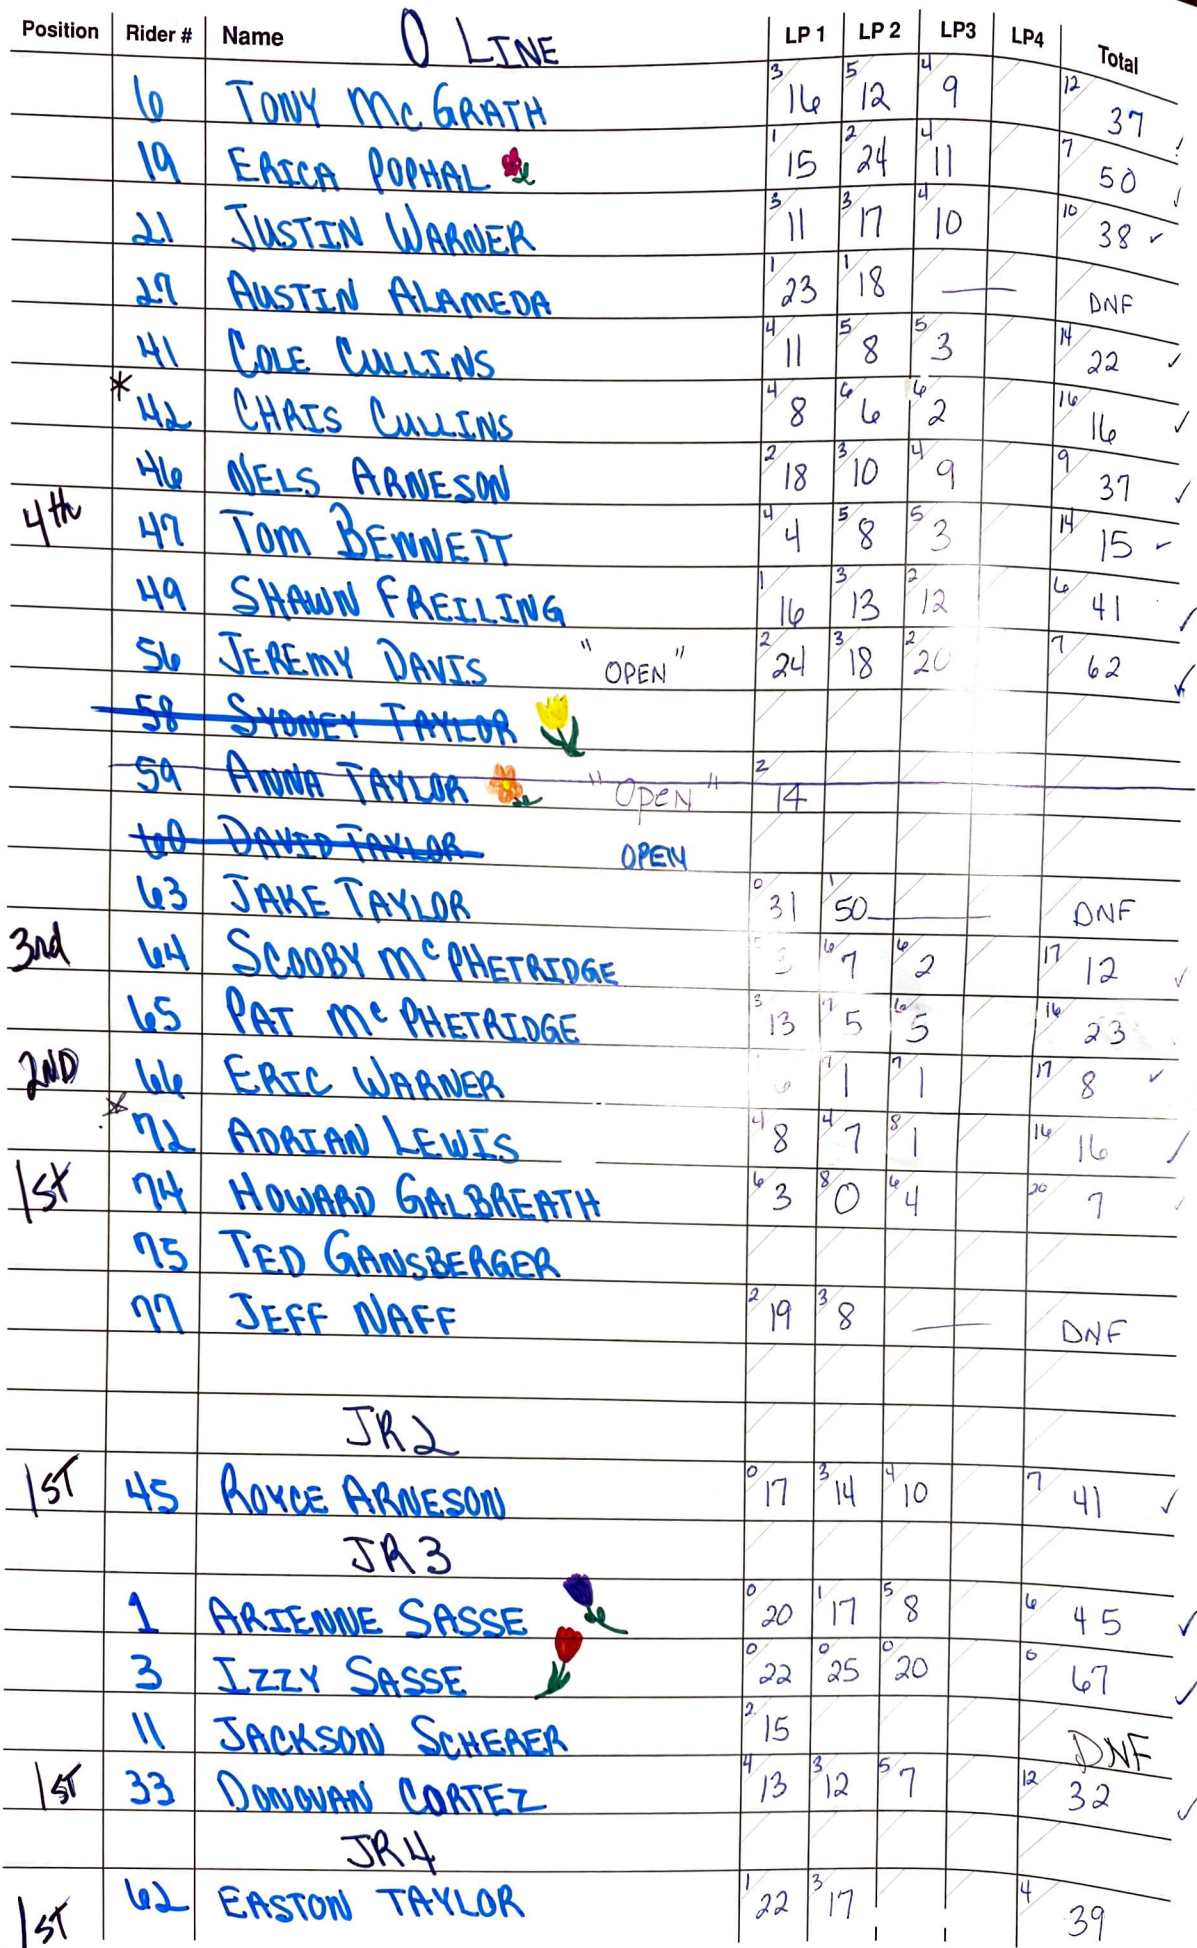 Position Rider # Name O LINE LP 1 LP 2 LP3 LP4 Total
6 TONY McGRATH 3 16 5 12 4 9 12 37
19 ERICA POPHAL 1 15 2 24 4 11 7 50
21 JUSTIN WARNER 3 11 3 17 4 10 10 38 ✓
27 AUSTIN ALAMEDA 1 23 1 18 — DNF
41 COLE CULLINS 4 11 5 8 5 3 14 22 ✓
* 42 CHRIS CULLINS 4 8 6 6 6 2 16 16 ✓
46 NELS ARNESON 2 18 3 10 4 9 9 37 ✓
4th 47 TOM BENNETT 4 4 5 8 5 3 14 15 ✓
49 SHAWN FREILING 1 16 3 13 2 12 6 41 ✓
56 JEREMY DAVIS "OPEN" 2 24 3 18 2 20 7 62 ✓
58 SYDNEY TAYLOR
59 ANNA TAYLOR "OPEN" 2 14
60 DAVID TAYLOR OPEN
63 JAKE TAYLOR 0 31 1 50 — DNF
3rd 64 SCOOBY McPHETRIDGE 5 3 6 7 6 2 17 12 ✓
65 PAT McPHETRIDGE 3 13 7 5 6 5 16 23
2ND 66 ERIC WARNER 6 7 1 7 1 17 8 ✓
* 72 ADRIAN LEWIS 4 8 4 7 8 1 16 16 ✓
1st 74 HOWARD GALBREATH 6 3 8 0 6 4 20 7 ✓
75 TED GANSBERGER
77 JEFF NAFF 2 19 3 8 — DNF
JR2
1ST 45 ROYCE ARNESON 0 17 3 14 4 10 7 41 ✓
JR3
1 ARIENNE SASSE 0 20 1 17 5 8 6 45 ✓
3 IZZY SASSE 0 22 0 25 0 20 0 67 ✓
11 JACKSON SCHERER 2 15 DNF
1ST 33 DONOVAN CORTEZ 4 13 3 12 5 7 12 32 ✓
JR4
1ST 62 EASTON TAYLOR 1 22 3 17 4 39